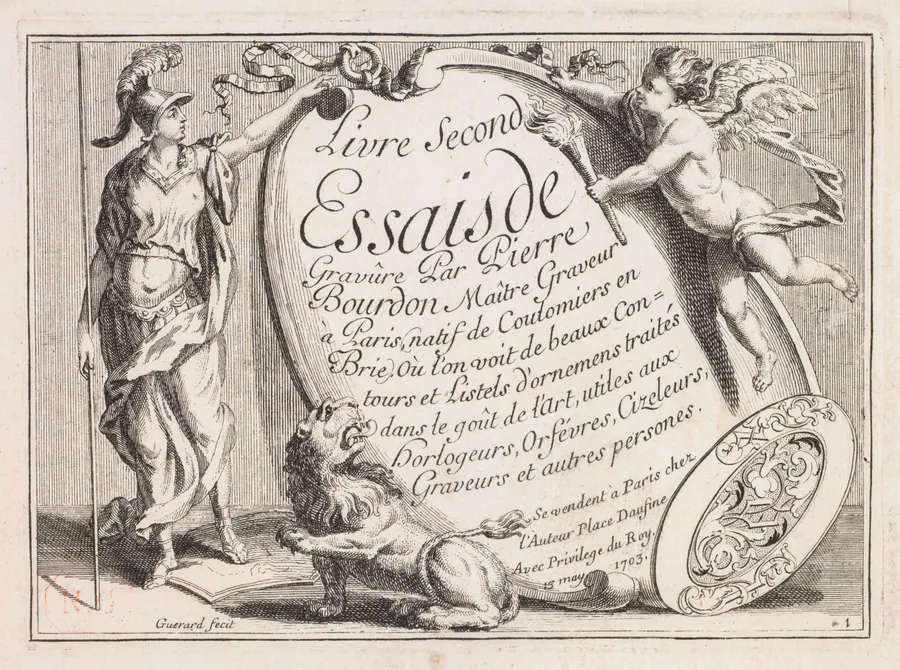 Livre Second
Essais de
Gravûre Par Pierre
Bourdon Maître Graveur
à Paris, (natif de Coulomiers en
Brie), Où l'on voit de beaux Con=
tours et Listels d'ornemens traités
dans le goût de l'Art, utiles aux
Horlogeurs, Orfévres, Cizeleurs,
Graveurs et autres persones.
Se vendent à Paris chez
l'Auteur Place Daufine
Avec Privilege du Roy.
15 may 1703.
Guerard fecit
1